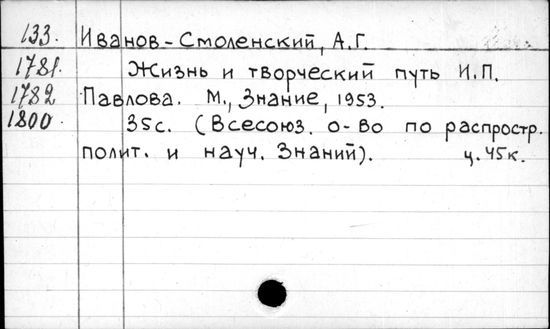 133. Иванов-Смоленский, А.Г.
1781. Жизнь и творческий путь И.П.
1782 Павлова. М., Знание, 1953.
1800. 35с. (Всесоюз. о-во по распростр.
полит. и науч. Знаний). ц. 45к.